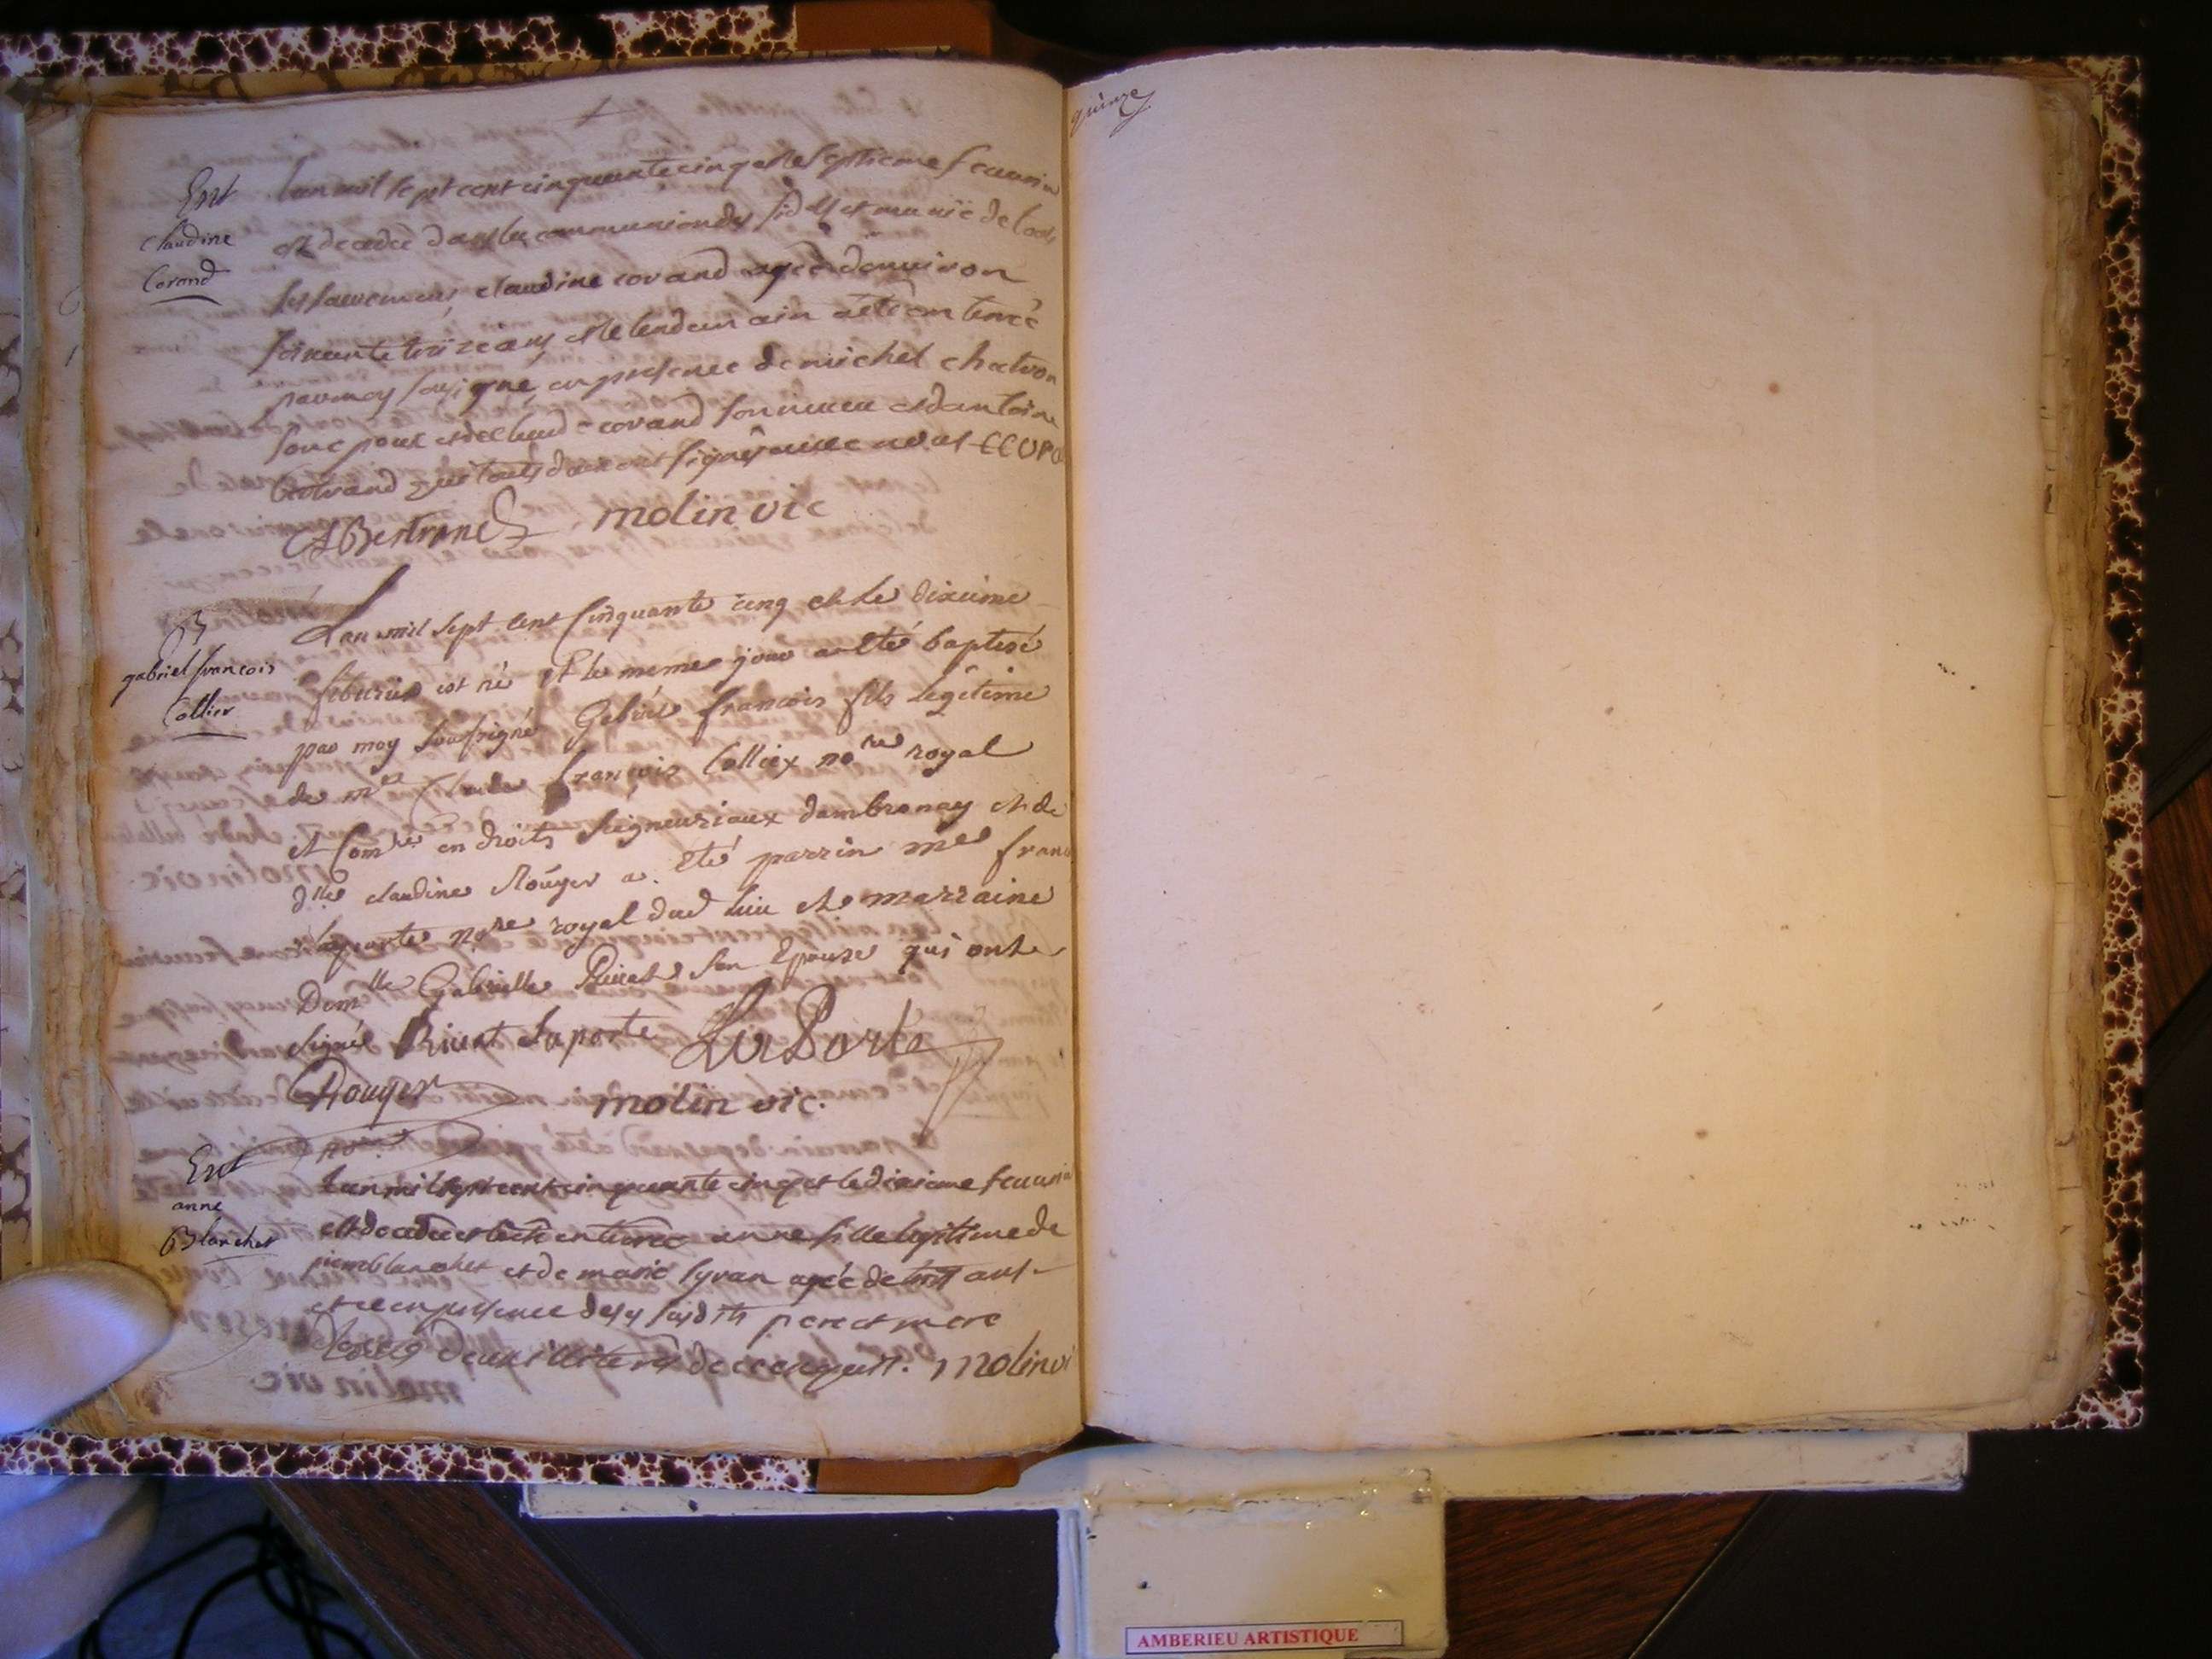 Ent
claudine
Corand
Lan mil sept cent cinquante cinq et le septieme feauvrier
est decedee dans la communion des fidels et munie de tous
les sacremens claudine corand agee denviron
soixante treize ans et le lendemain a été enterrée
par moy soussigné en presence de michel chatron
son epoux et de claude corand son neveu et dantoine
bertrand
ABertrand molin vic
B
gabriel francois
Collier
Lan mil sept cent Cinquante cinq et le dixieme
feburier est né et le meme jour a eté baptisé
par moy soussigné Gabriel francois fils legitime
de me Claude françois Colliex nore royal
et Comre en droits seigneuriaux dambronay et de
dlle claudine Roüyer a été parrin me franc
laporte nore royal dud lieu et marraine
Demlle Gabrielle Rivet son Epouse qui ont
signé Rivet Laporte LaPorte
Rouyer molin vic.
Ent
anne
Blanchet
Lan mil sept cent cinquante cinq et le dixieme feauvrier
est decedee et a été enterrée anne fille legitime de
pierre blanchet et de marie syvan agée de huit ans
et ce en presence de ses susdits pere et mere
tous deux illiterés de ce enquis. molin vi
quinze
AMBERIEU ARTISTIQUE